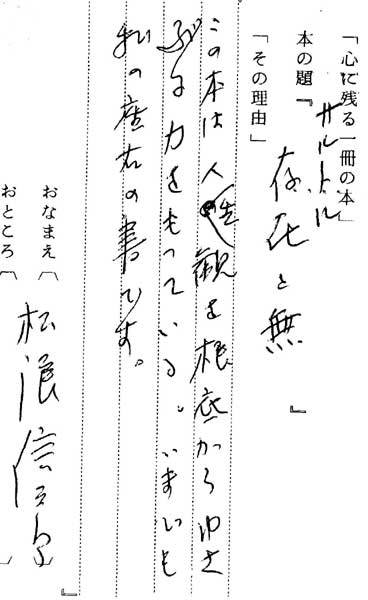 「心に残る一冊の本」
本の題『サルトル 存在と無』
「その理由」
この本は人間観を根底からゆさ
ぶる力をもっている。いまでも
私の座右の書です。
おなまえ〔松浪信三郎〕
おところ〔 〕
』